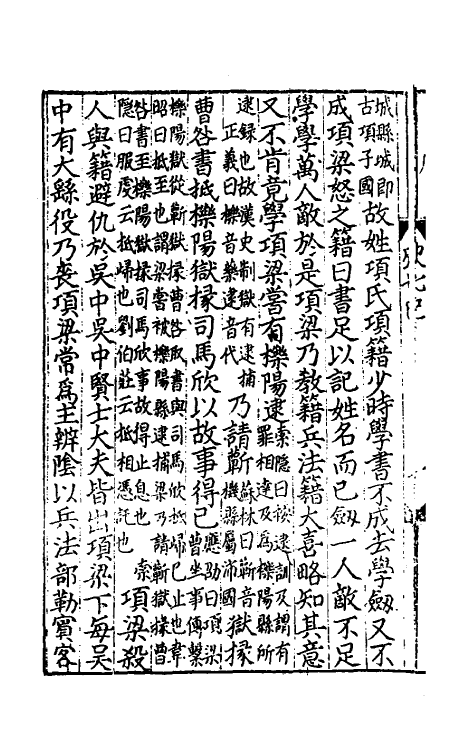 城縣城即古項子國故姓項氏項籍少時學書不成去學劔又不
成項梁怒之籍曰書足以記姓名而已劔一人敵不足
學學萬人敵於是項梁乃教籍兵法籍大喜略知其意
又不肯竟學項梁嘗有櫟陽逮索隱曰按逮訓及謂有罪相連及為櫟陽縣所
逮録也故漢史制獄有逮捕正義曰櫟音藥逮音代乃請蘄蘇林曰蘄音機縣屬沛國獄掾
曹咎書抵櫟陽獄掾司馬欣以故事得已應劭曰項梁曾坐事傳繫
櫟陽獄從蘄獄掾曹咎取書與司馬欣抵歸已止也韋昭曰抵至也謂梁嘗被櫟陽縣逮捕梁乃請蘄獄掾曹
咎書至櫟陽獄掾司馬欣事故得止息也索隱曰服虔云抵歸也劉伯莊云抵相憑託也項梁殺
人與籍避仇於吳中吳中賢士大夫皆出項梁下每吳
中有大繇役乃喪項梁常為主辦陰以兵法部勒賓客